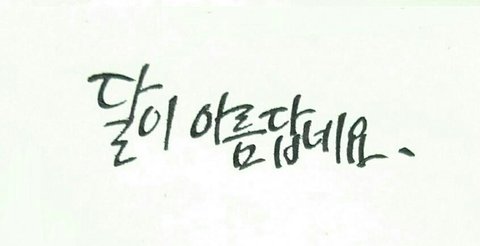 달이 아름답네요.